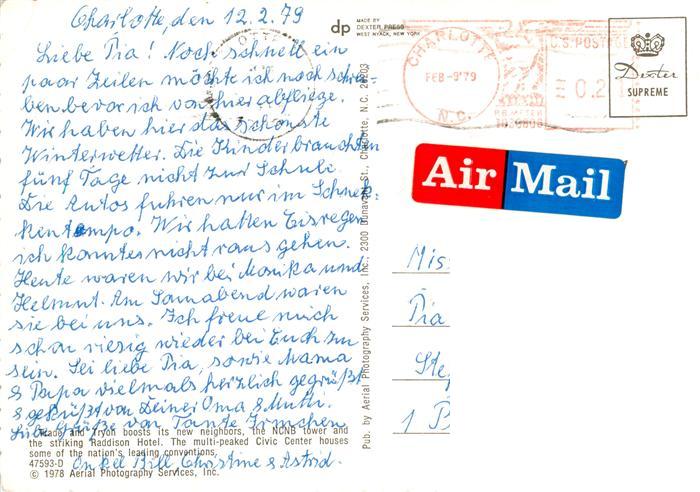 Charlotte, den 12.2.79
Liebe Pia! Noch schnell ein
paar Zeilen möchte ich noch schrei
ben bevor ich von hier abfliege.
Wir haben hier das schönste
Winterwetter. Die Kinder brauchten
fünf Tage nicht zur Schule.
Die Autos fuhren nur im Schnek
kentempo. Wir hatten Eisregen
ich konnte nicht raus gehen.
Heute waren wir bei Monika und
Helmut. Am Sonnabend waren
sie bei uns. Ich freue mich
schon riesig wieder bei Euch zu
sein. Sei liebe Pia, sowie Mama
& Papa vielmals herzlich gegrüßt
& geküßt von Deiner Oma & Mutti.
Liebe Grüße von Tante Irmchen
Onkel Bill, Christine & Astrid.
and Tryon boosts its new neighbors, the NCNB tower and
the striking Raddison Hotel. The multi-peaked Civic Center houses
some of the nation's leading conventions.
47593-D
© 1978 Aerial Photography Services, Inc.
Pub. by Aerial Photography Services, Inc., 2300 Dunavant St., Charlotte, N.C. 28203
dp
MADE BY
DEXTER PRESS
WEST NYACK, NEW YORK
CHARLOTTE
FEB -9'79
N.C.
U.S. POSTAGE
0.2
Dexter
SUPREME
Air Mail
Mis
Pia
Ste
1 B